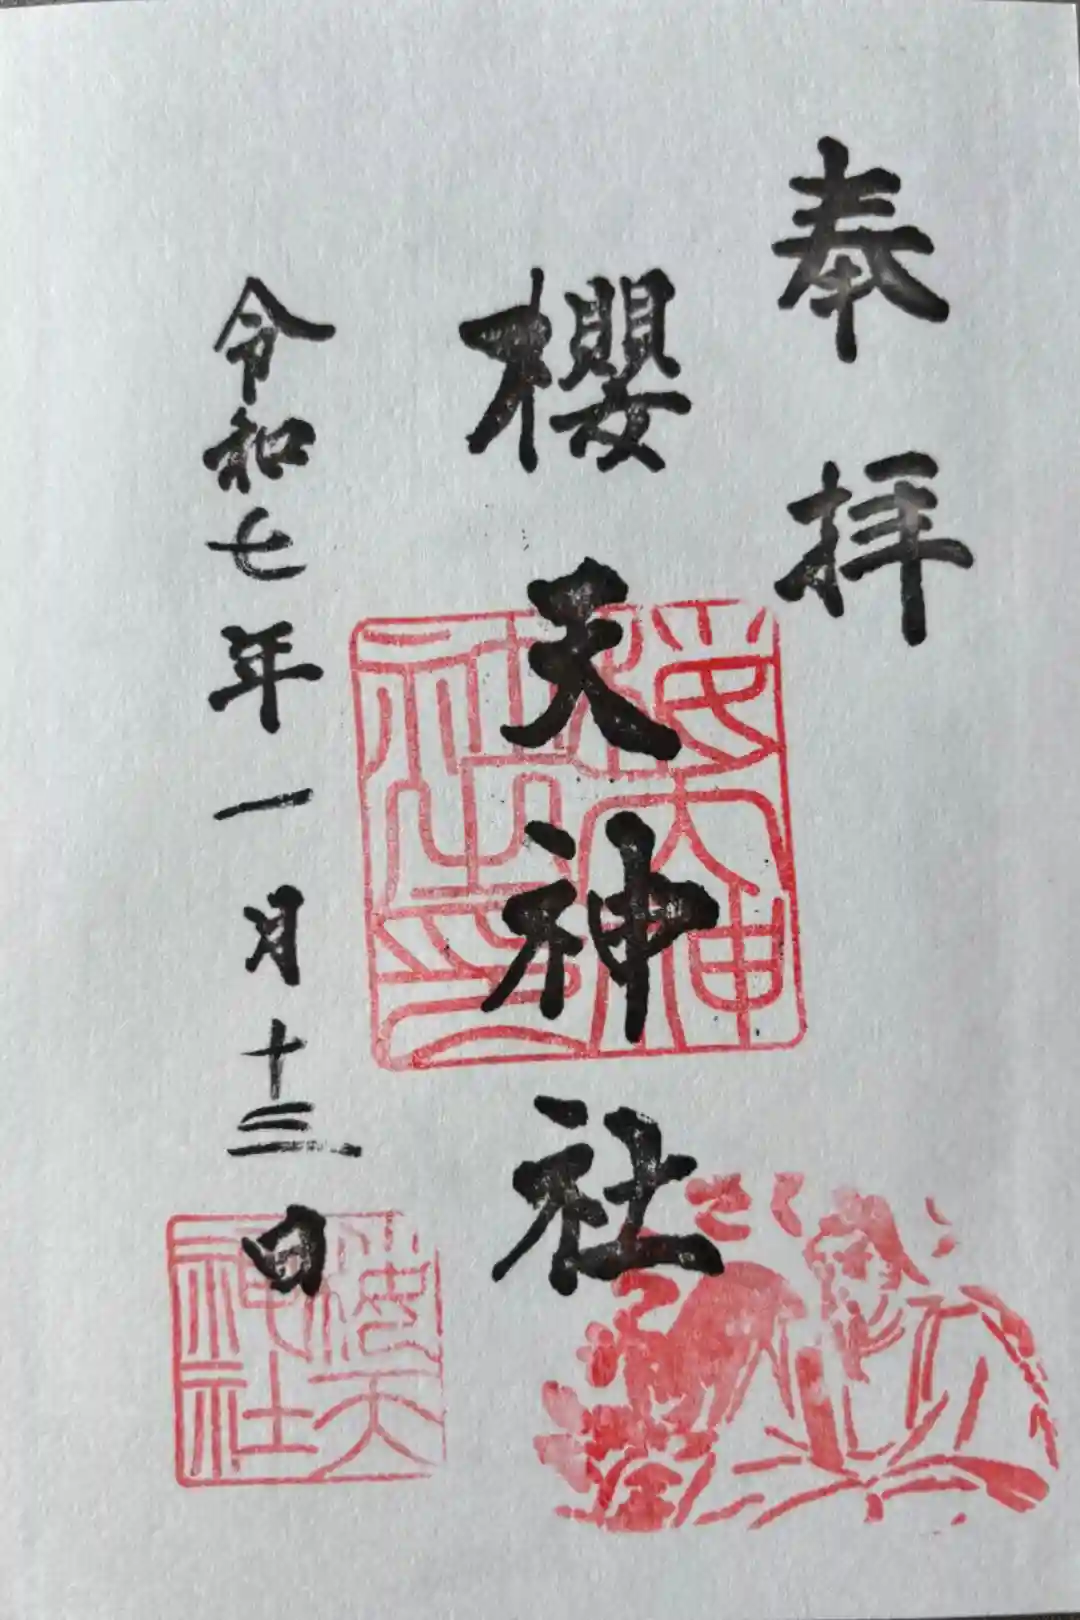 奉拝
櫻天神社
令和七年一月十三日
櫻天神社印
櫻天神社